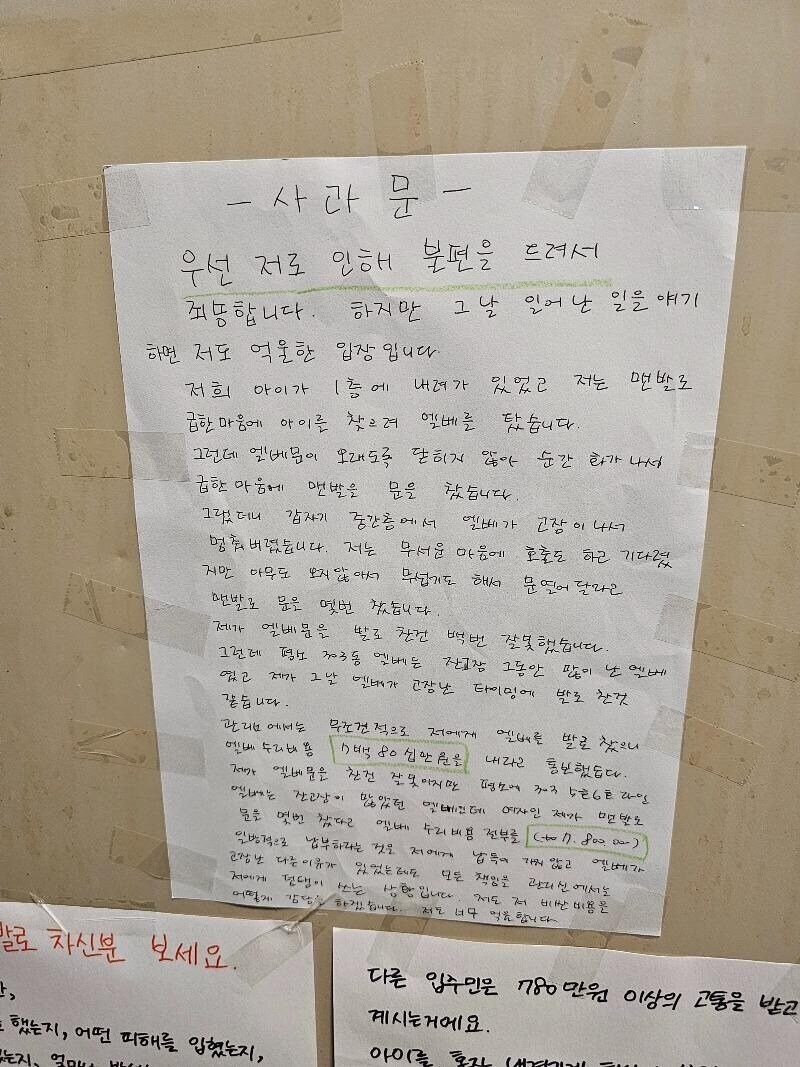 - 사 과 문 -
우선 저로 인해 불편을 드려서
죄송합니다. 하지만 그날 일어난 일을 얘기
하면 저도 억울한 입장입니다.
저희 아이가 1층에 내려가 있었고 저는 맨발로
급한마음에 아이를 찾으려 엘베를 탔습니다.
그런데 엘베문이 오래도록 닫히지 않아 순간 화가나서
급한마음에 맨발을 문을 찼습니다.
그랬더니 갑자기 중간층에서 엘베가 고장이나서
멈춰버렸습니다. 저는 무서운 마음에 호출도 하고 기다렸
지만 아무도 오지않아서 무섭기도 해서 문열어 달라고
맨발로 문을 몇번 찼습니다.
제가 엘베문을 발로 찬건 백번 잘못했습니다.
그런데 평소 303동 엘베는 잔고장 그동안 많이 난 엘베
였고 제가 그날 엘베가 고장난 타이밍에 발로 찬것
같습니다.
관리소에서는 무조건적으로 저에게 엘베를 발로 찼으니
엘베 수리비용 7백 80 십만원을 내라고 통보했습니다.
제가 엘베문을 찬건 잘못이지만 평소에 303 5호6호 라인
엘베는 잔고장이 많았던 엘베인데 여자인 제가 맨발로
문을 몇번 찼다고 엘베 수리비용 전부를
일방적으로 납부하라는 것은 저에게 납득이 가지 않고 엘베가
고장난 다른이유가 있었는데도 모든 책임을 관리실에서는
저에게 쓰는 상황입니다. 저도 저 비싼비용을
어떻게 감당을 하겠습니까. 저도 너무 억울합니다
발로 차신분 보세요.
했는지, 어떤 피해를 입혔는지,
다른 입주민은 780만원 이상의 고통을 받고
계시는거에요.
아이를 혼자